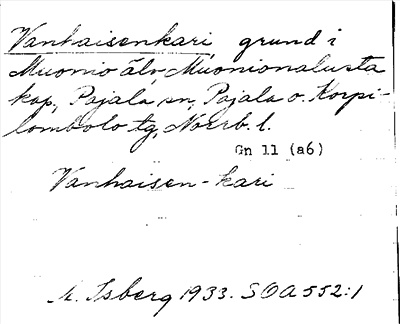 Vanhaisenkari, grund i
Muonio älv, Muonionalusta
kap., Pajala sn, Pajala o. Korpi-
lombolo tg, Norrb. l.
Gn 11 (a6)
Vanhaisen-kari
M. Isberg 1933. SOA 552:1